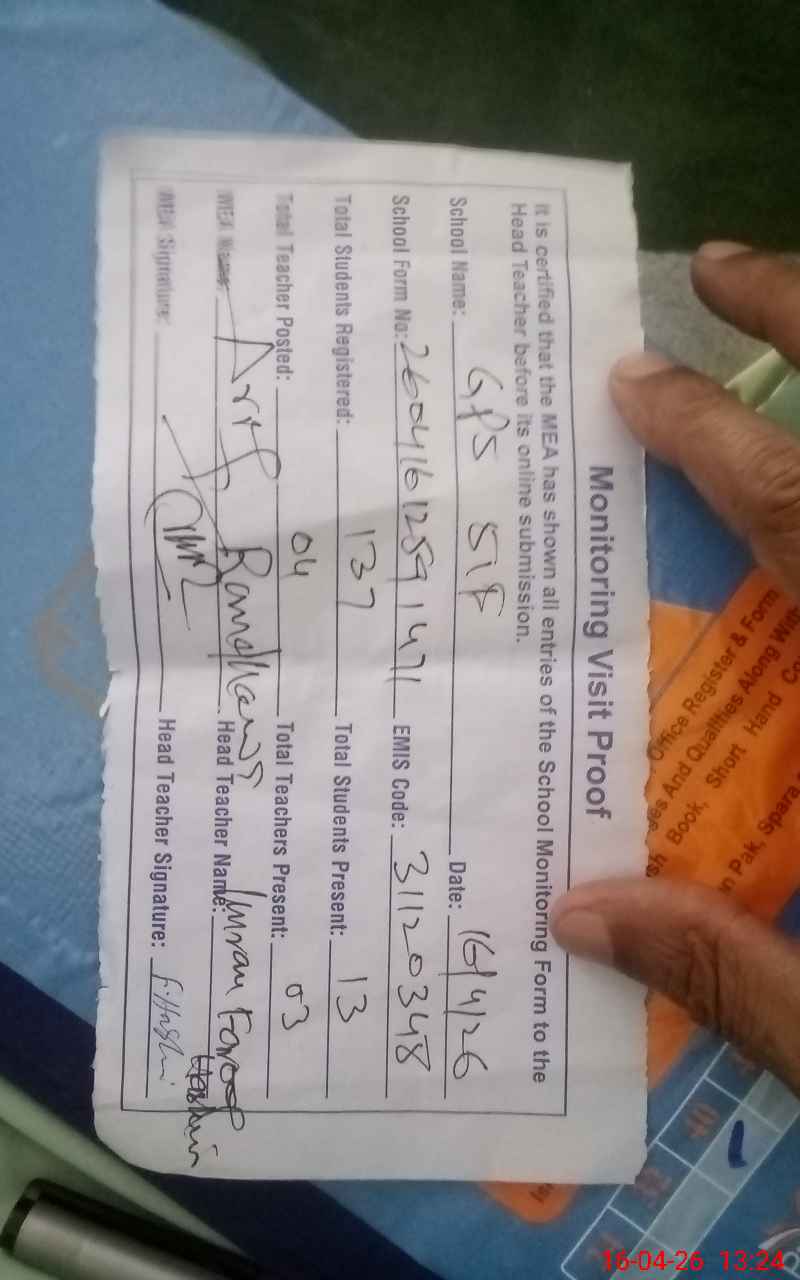 Monitoring Visit Proof
It is certified that the MEA has shown all entries of the School Monitoring Form to the
Head Teacher before its online submission.
School Name: GPS 51F Date: 16/4/26
School Form No: 26041612591471 EMIS Code: 31120348
Total Students Registered: 137 Total Students Present: 13
Total Teacher Posted: 04 Total Teachers Present: 03
MEA Name: Arif Ramdhan Head Teacher Name: Imran Farooq Hashmi
MEA Signature: Head Teacher Signature:
Office Register & Form
es And Qualities Along With
sh Book, Short Hand Co
n Pak, Spara
40
32
24
16-04-26 13:24